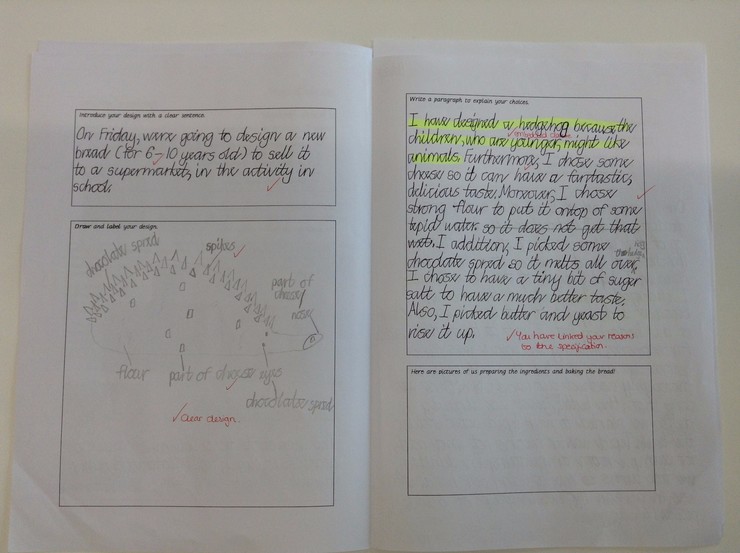 Introduce your design with a clear sentence.
On Friday, were going to design a new
bread (for 6-10 years old) to sell it
to a supermarket, in the activity in
school.
Draw and label your design.
chocolate spred
spikes
part of
chees
nose
flour
part of cheese
eyes
chocolate spred
Clear design.
Write a paragraph to explain your choices.
I have designed a hedgehog because the
embedded clause
children, who are younger, might like
animals. Furthermore, I chose some
cheese so it can have a fantastic,
delicious taste. Moreover, I chose
strong flour to put it ontop of some
tepid water so it does not get that
wet. I addition, I picked some
chocolate spred so it melts all over
I chose to have a tiny bit of suger
salt to have a much better taste.
Also, I picked butter and yeast to
rise it up.
You have linked your reasons
to the specification.
Here are pictures of us preparing the ingredients and baking the bread!